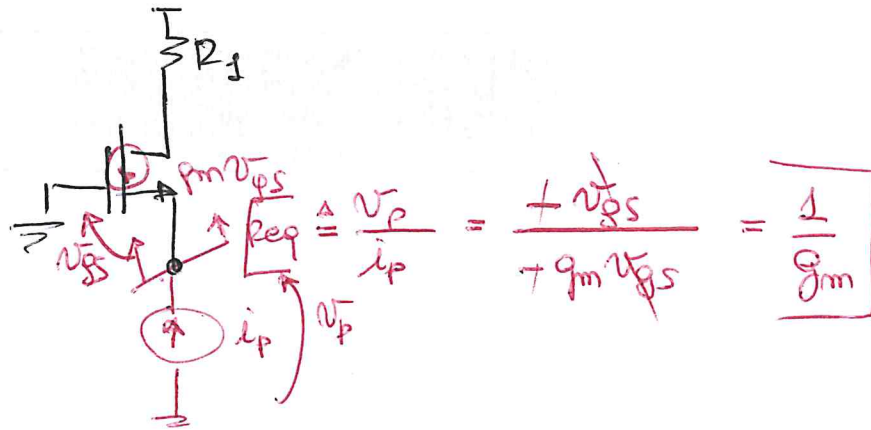 R1
gm vgs
vgs
Req ≜ vp / ip = + vgs / + gm vgs = 1 / gm
ip
vp